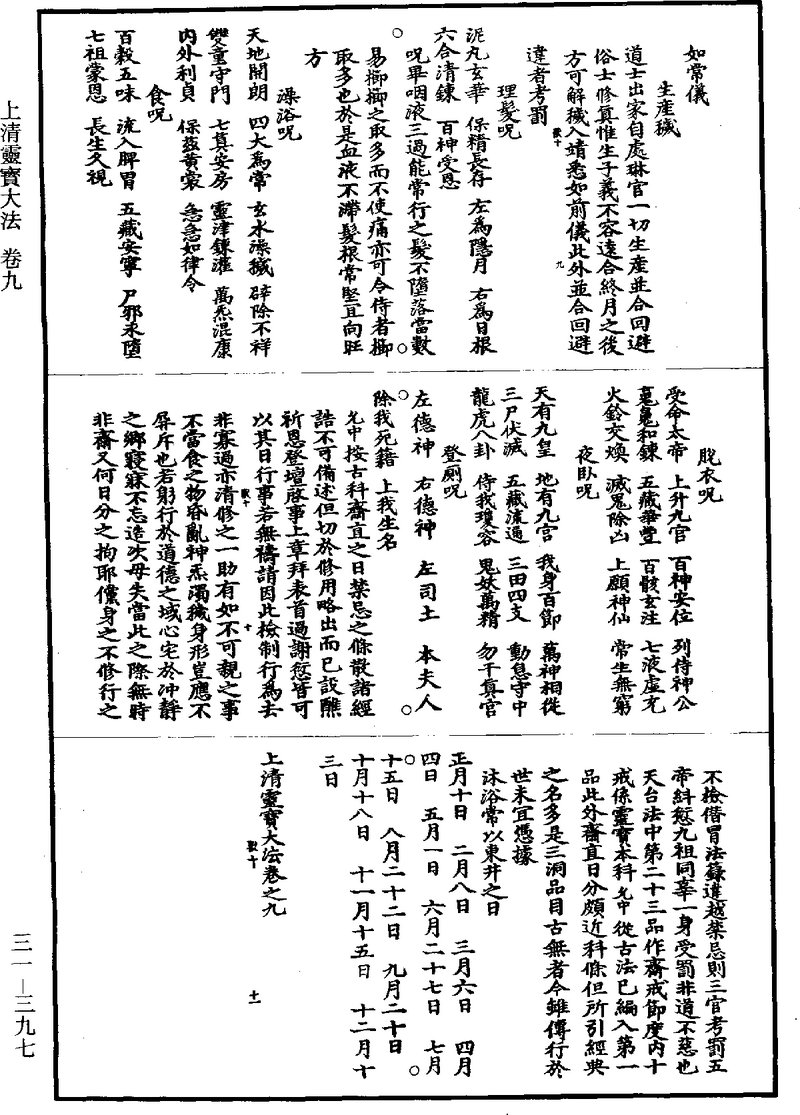 上清靈寶大法　卷九
三一—三九七
如常儀
生產穢
道士出家自處琳宮一切生產並合回避
俗士修真惟生子義不容遠合終月之後
方可解穢入靖悉如前儀此外並合回避
違者考罰
理髮呪
泥丸玄華　保精長存　左為隱月　右為日根
六合清鍊　百神受恩
呪畢咽液三過能常行之髮不墮落當數
易櫛櫛之取多而不使痛亦可令侍者櫛
取多也於是血液不滯髮根常堅且向旺
方
澡浴呪
天地開朗　四大為常　玄水澡穢　辟除不祥
雙童守門　七真安房　靈津鍊灌　萬炁混康
內外利貞　保茲黃裳　急急如律令
食呪
百穀五味　流入脾胃　五藏安寧　尸邪永墮
七祖蒙恩　長生久視
脫衣呪
受命太帝　上升九宮　百神安位　列侍神公
魂魄和鍊　五藏華豐　百骸玄注　七液虛充
火鈴交煥　滅鬼除凶　上願神仙　常生無窮
夜臥呪
天有九皇　地有九宮　我身百節　萬神相從
三尸伏滅　五藏流通　三田四支　動息守中
龍虎八卦　侍我瓊容　鬼妖萬精　勿干真宮
登廁呪
左德神　右德神　左司土　本夫人
除我死籍　上我生名
允中按古科齋宜之日禁忌之條散諸經
誥不可備述但切於修用略出而已設醮
祈恩登壇啓事上章拜表首過謝愆皆可
以其日行事若無禱請因此檢制行為去
非寡過亦清修之一助有如不可親之事
不當食之物昏亂神炁濁穢身形豈應不
屏斥也若躬行於道德之域心宅於沖靜
之鄉寢寐不忘造次毋失當此之際無時
非齋又何日分之拘耶儻身之不修行之
不檢僭冒法籙違越禁忌則三官考罰五
帝糾愆九祖同辜一身受罰非道不慈也
天台法中第二十三品作齋戒節度內十
戒係靈寶本科允中從古法已編入第一
品此外齋直日分頗近科條但所引經典
之名多是三洞品目古無者今雖傳行於
世未宜憑據
沐浴常以東井之日
正月十日　二月八日　三月六日　四月
四日　五月一日　六月二十七日　七月
十五日　八月二十二日　九月二十日
十月十八日　十一月十五日　十二月十
三日
上清靈寶大法卷之九